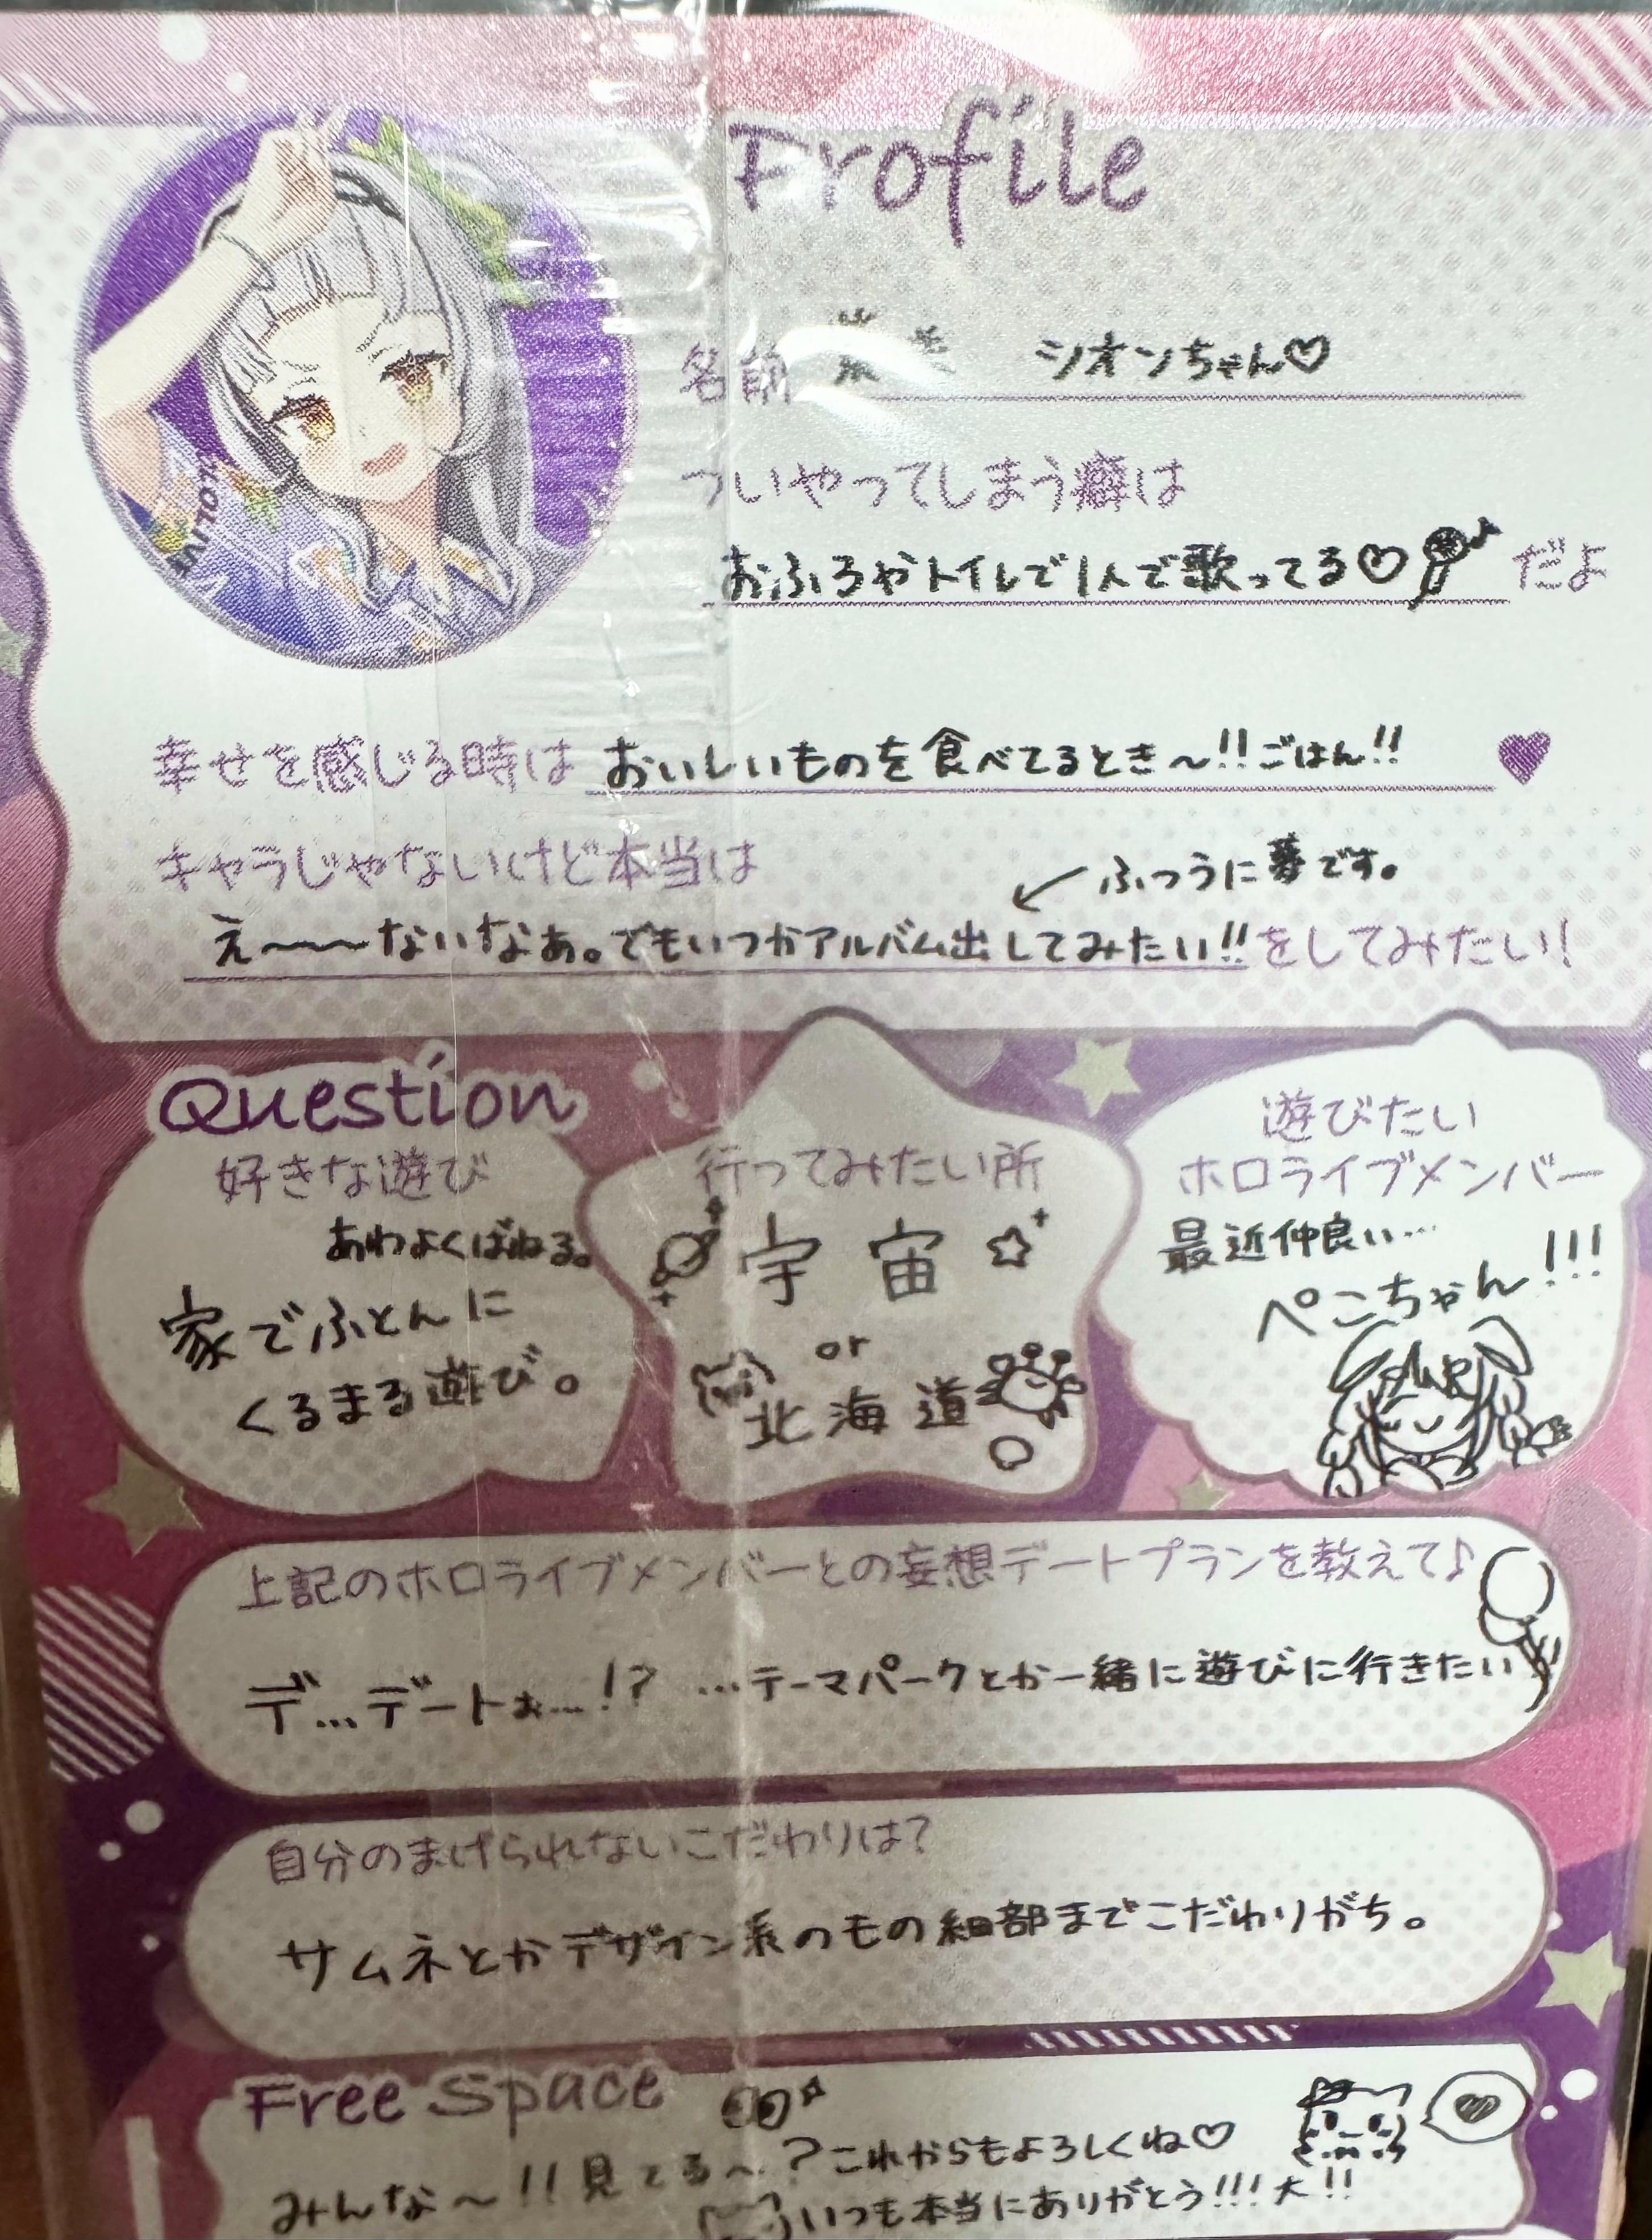 Profile
名前 シオンちゃん♡
ついやってしまう癖は
おふろやトイレで1人で歌ってる♡ だよ
幸せを感じる時は おいしいものを食べてるとき〜!!ごはん!! ♥
キャラじゃないけど本当は
ふつうに夢です。
え〜〜〜ないなぁ。でもいつかアルバム出してみたい!! をしてみたい!
Question
好きな遊び
あわよくばねる。
家でふとんに
くるまる遊び。
行ってみたい所
宇宙
or
北海道
遊びたい
ホロライブメンバー
最近仲良い…
ぺこちゃん!!!
上記のホロライブメンバーとの妄想デートプランを教えて♪
デ…デートぉ…!? …テーマパークとか一緒に遊びに行きたい
自分のまげられないこだわりは?
サムネとかデザイン系のもの細部までこだわりがち。
Free Space
みんな〜!!見てる〜?これからもよろしくね♡
いつも本当にありがとう!!!大!!